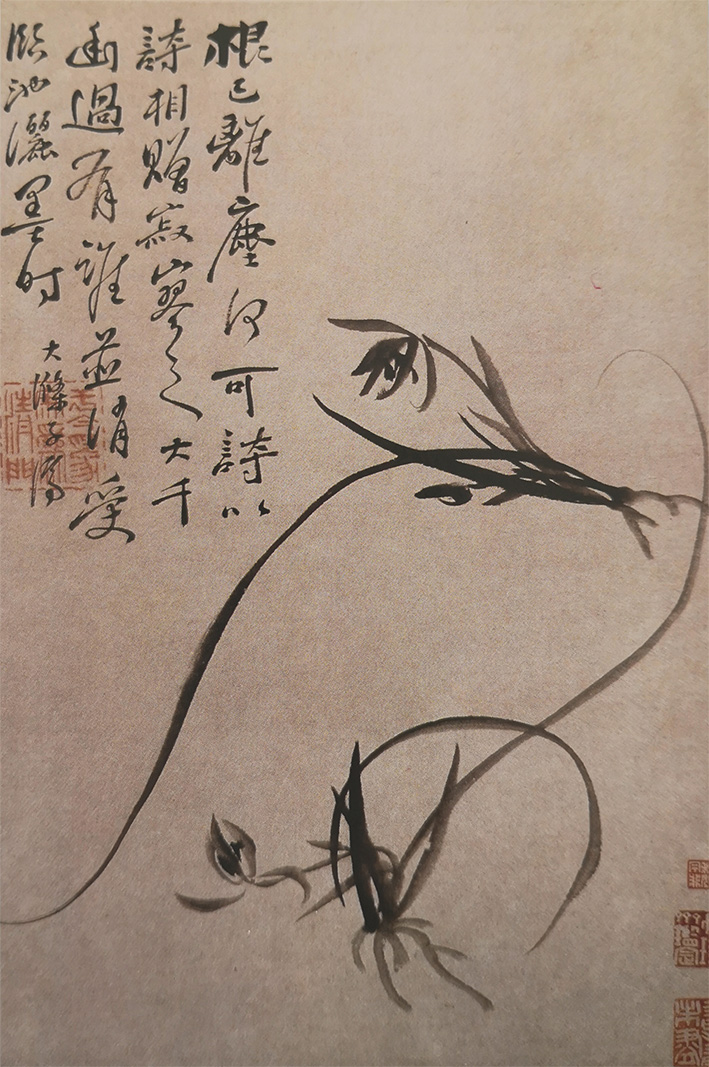 根已離塵何可詩以
詩相贈寂寥之大千
幽過有誰並消受
臨池灑墨時 大滌子濟